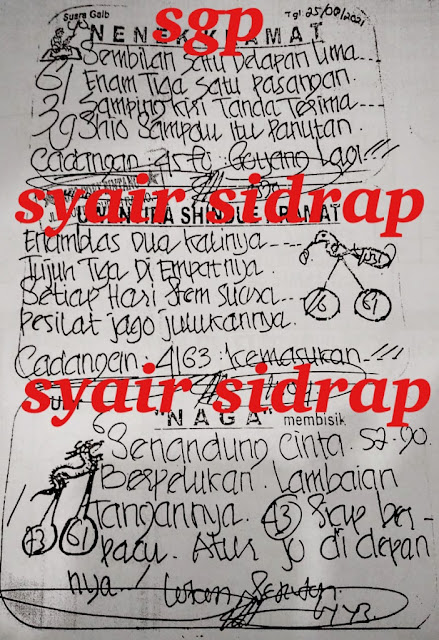 Suara Gaib
Tgl. 25/08/2021
NENEK KRAMAT
sgp
Sembilan Satu Delapan Lima
61 Enam Tiga Satu Pasangan.
Samping Kiri Tanda Terima
39 Shio Sampau Itu Panutan.
Cadangan Goyang Lagi !!!
syair sidrap
KRAMAT
Enamblas Dua Kalinya
Tujuh Tiga Di Empatnya.
Setiap Hari Stem Suara
16 61
Pesilat Jago Julukannya.
Cadangan : 4163 : Kemasukan !!!
syair sidrap
"NAGA" membisik.
"Senandung Cinta. 57.90.
Berpelukan. Lambaian
tangannya. 43 Siap ber-
43 61
pacu. Atur di depan
nya !